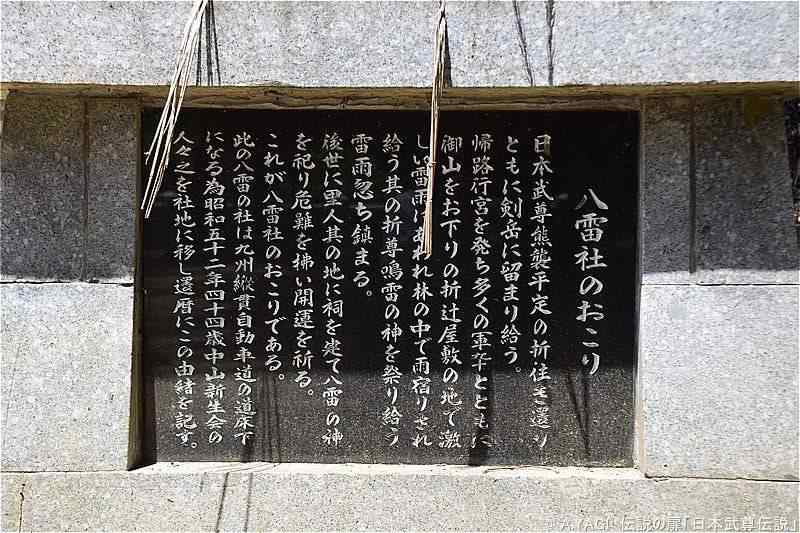 八雷社のおこり
日本武尊熊襲平定の折往き還り
ともに剣岳に留まり給う。
帰路行宮を発ち多くの軍卒とともに
御山をお下りの折辻屋敷の地で激
しい雷雨にあわれ林の中で雨宿りされ
給う其の折尊鳴雷の神を祭り給う
雷雨忽ち鎮まる。
後世に里人其の地に祠を建て八雷の神
を祀り危難を拂い開運を祈る。
これが八雷社のおこりである。
此の八雷の社は九州縦貫自動車道の道床下
になる為昭和五十二年四十四歳中山新生会の
人々之を社地に移し還暦にこの由緒を記す。
©A.YAGI 伝説の扉「日本武尊伝説」